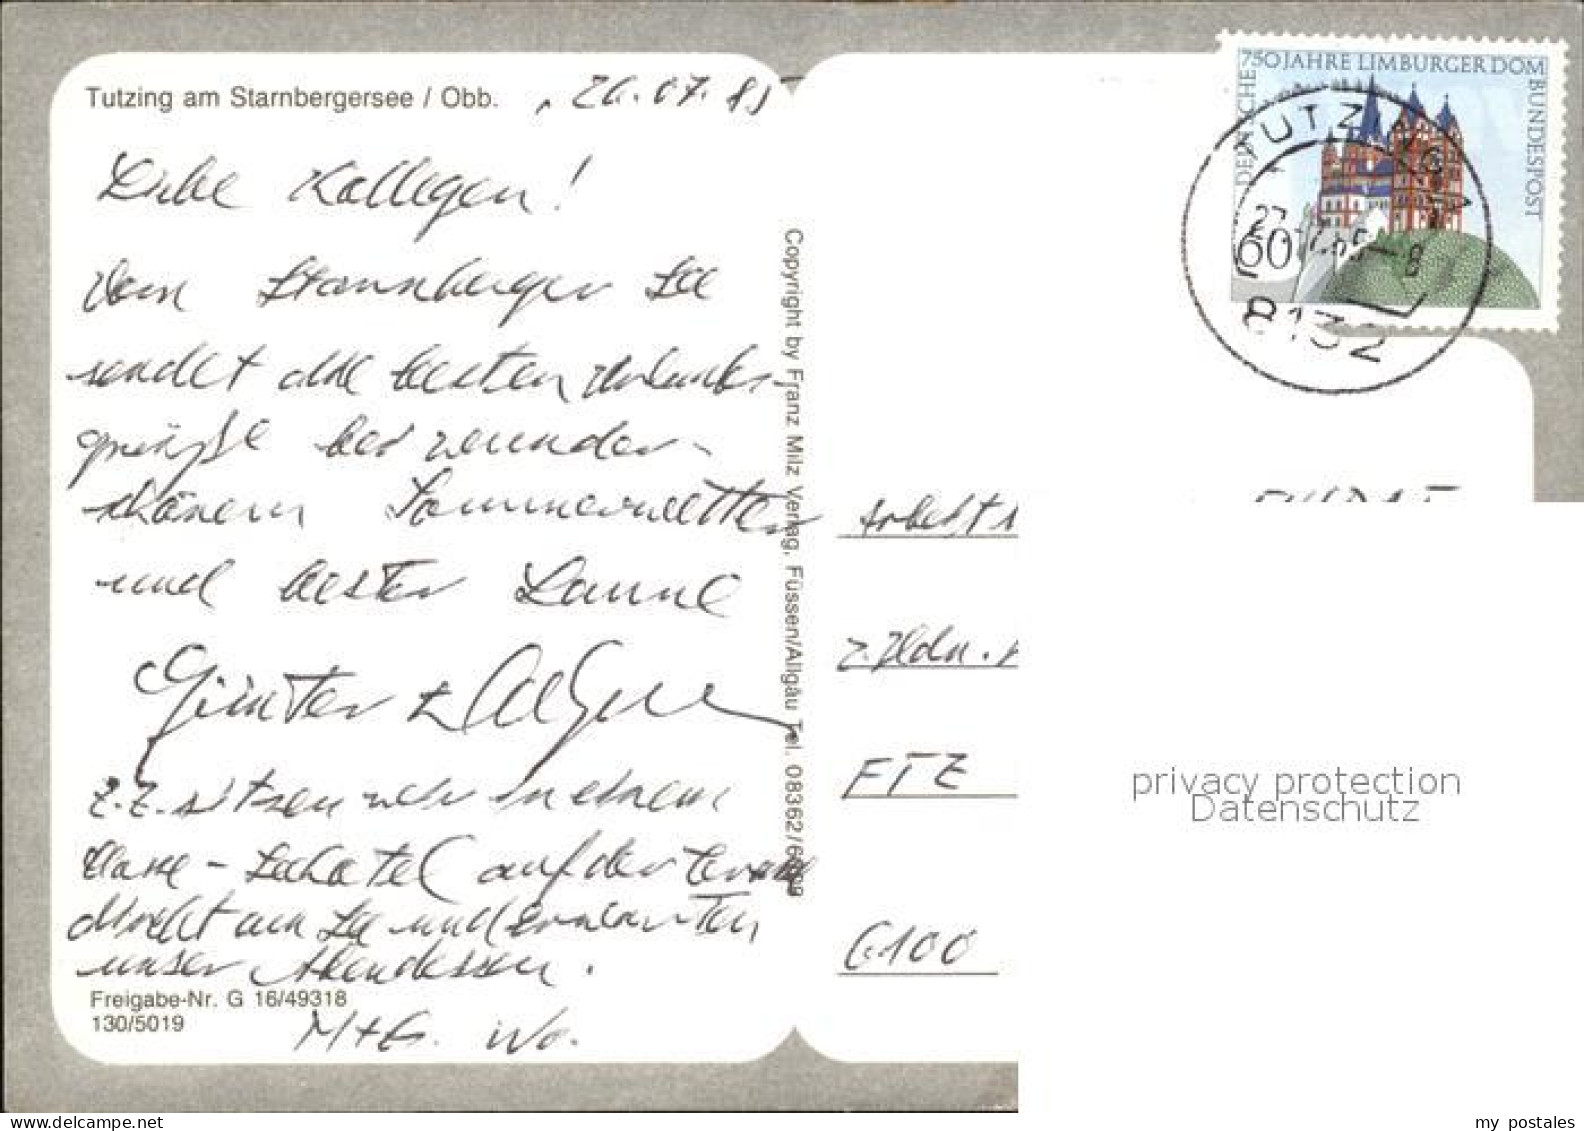 Tutzing am Starnbergersee / Obb.
26.07.85
Liebe Kollegen!
Vom Starnberger See
sendet die besten Urlaubs-
grüße bei wunder-
schönem Sommerwetter
und bester Laune
Günter +
z.Z. sitzen wir in einem
Klasse-Seehotel auf der
direkt am See und erwarten
unser Abendessen.
M+G. Wo.
Freigabe-Nr. G 16/49318
130/5019
Copyright by Franz Milz Verlag, Füssen/Allgäu Tel. 08362/6
750 JAHRE LIMBURGER DOM
DEUTSCHE
BUNDESPOST
60
TUTZING
8132
z.Hdn.
FTZ
6100
privacy protection
Datenschutz
my postales